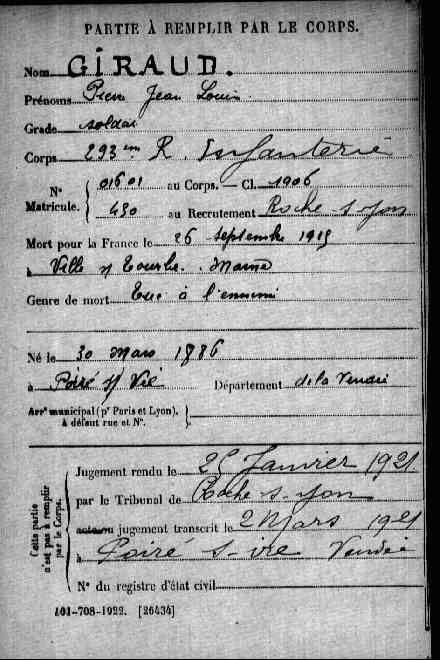 PARTIE À REMPLIR PAR LE CORPS.
Nom GiRAUD.
Prénoms Pierre Jean Louis
Grade soldat
Corps 293ème R. Infanterie
N° Matricule. { 01601 au Corps. — Cl. 1906
430 au Recrutement Roche s. yon
Mort pour la France le 26 septembre 1915
à Ville s/ Tourbe. Marne
Genre de mort Tué à l'ennemi
Né le 30 Mars 1886
à Poiré s/ Vie Département de la Vendée
Arrt municipal (pr Paris et Lyon), à défaut rue et N°. }
Cette partie n'est pas à remplir par le Corps.
Jugement rendu le 25 Janvier 1921.
par le Tribunal de Roche-s-yon
acte ou jugement transcrit le 2 Mars 1921
à Poiré s-vie Vendée
N° du registre d'état civil
101-708-1922. [26434]